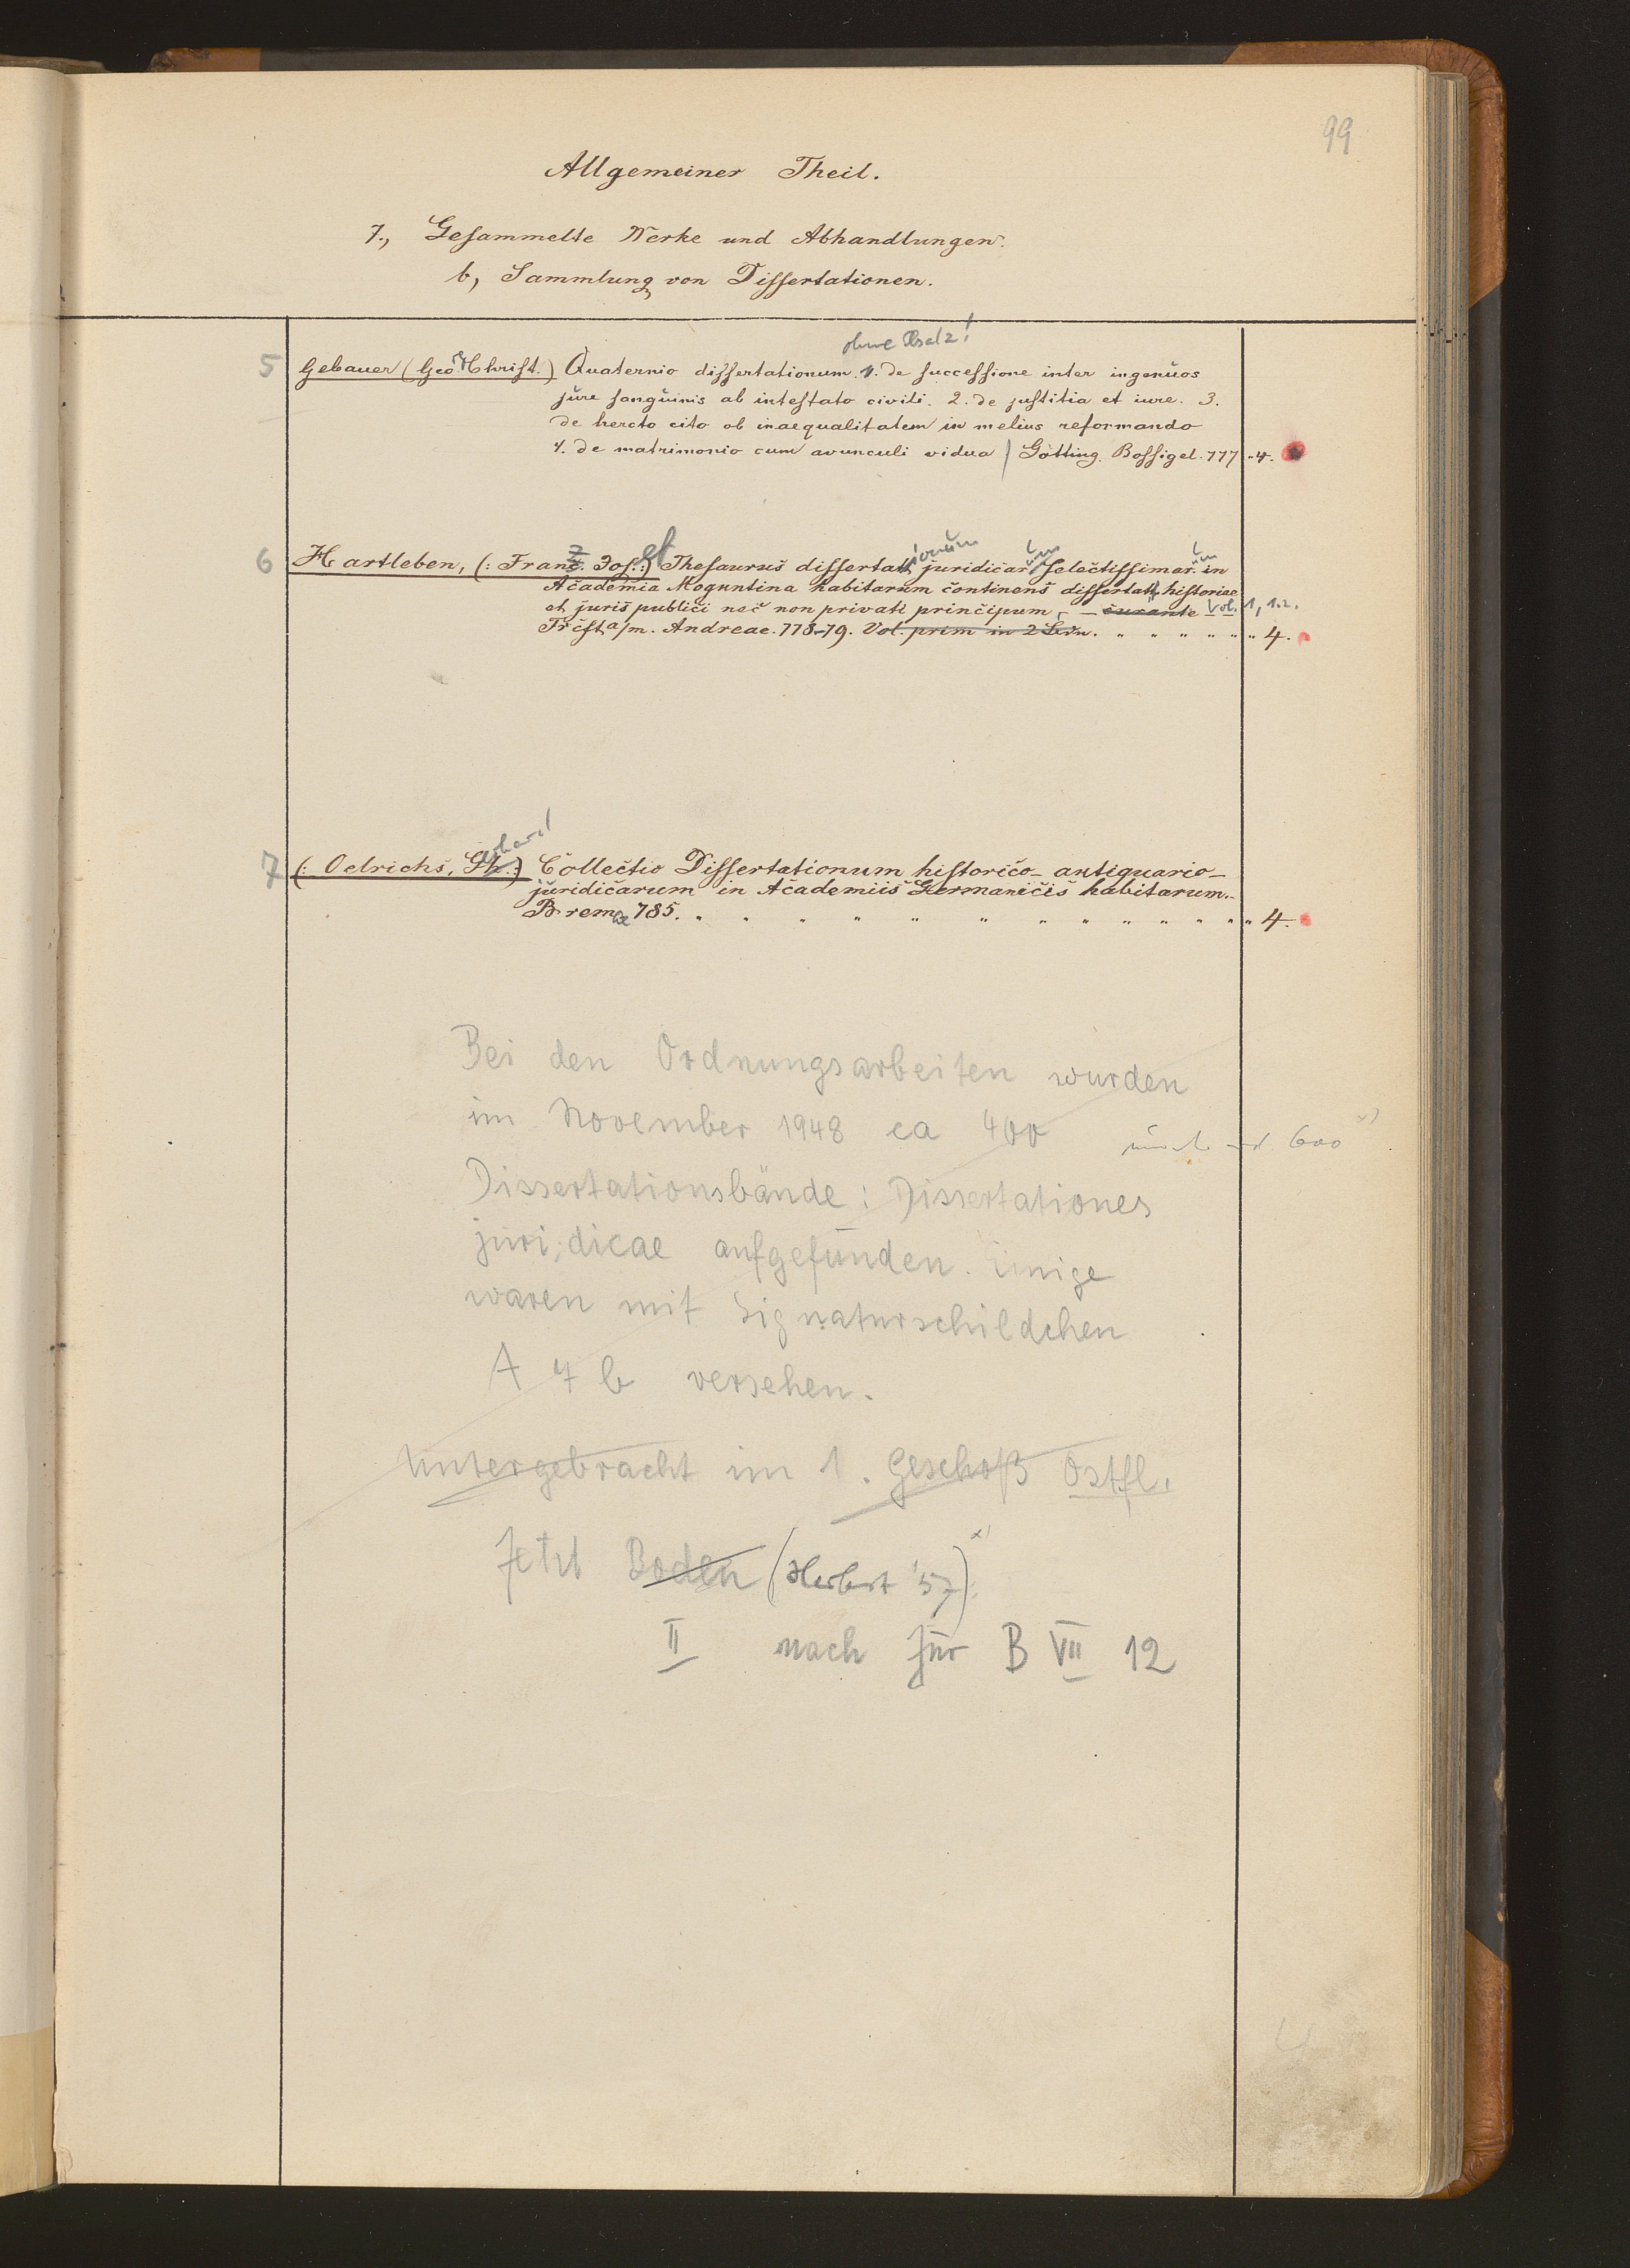 99
Allgemeiner Theil.
7., Gesammelte Werke und Abhandlungen.
b, Sammlung von Dissertationen.
ohne
5 Gebauer (Geo. Christ.) Quaternio dissertationum. 1. de successione inter ingenuos
jure sanguinis ab intestato civili. 2. de justitia et iure. 3.
de hercto cito ob inaequalitatem in melius reformando
4. de matrimonio cum avunculi vidua / Götting. Bossigel. 777 „ 4.
6 Hartleben, (: Franz. Jos. :) Thesaurus dissertationum juridicarum selectissimarum in
Academia Moguntina habitarum continens dissertatt. historiae
et juris publici nec non privati principum, – curante Vol. 1, 1.2.
Frcft a/m. Andreae. 778-79. Vol. prim in 2 „ „ „ „ „ „ 4.
7 (: Oelrichs, Gerhard :) Collectio Dissertationum historico-antiquario-
juridicarum in Academiis Germanicis habitarum.
Bremae 785. „ „ „ „ „ „ „ „ „ „ „ „ „ 4.
Bei den Ordnungsarbeiten wurden
im November 1948 ca 400
600 x)
Dissertationsbände: Dissertationes
juri;dicae aufgefunden. Einige
waren mit Signaturschildchen
A 7 b versehen.
Untergebracht im 1. Geschoß Ostfl.
Jetzt Boden (Herbst '57) x)
II nach für B VII 12